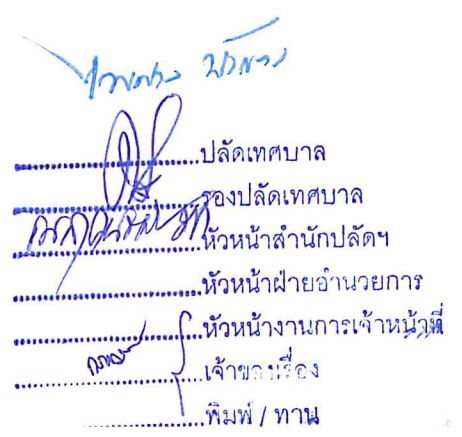 ..................ปลัดเทศบาล
..................รองปลัดเทศบาล
..................หัวหน้าสำนักปลัดฯ
..................หัวหน้าฝ่ายอำนวยการ
..................หัวหน้างานการเจ้าหน้าที่
..................เจ้าของเรื่อง
..................พิมพ์ / ทาน